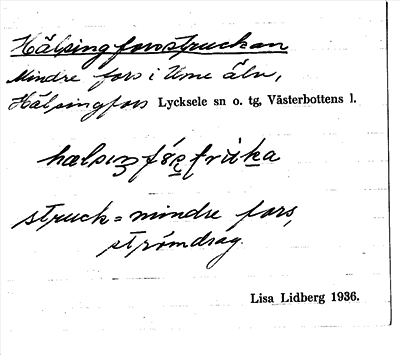 Hälsingforsstruckan
Mindre fors i Ume älv,
Hälsingfors Lycksele sn o. tg, Västerbottens l.
struck = mindre fors,
strömdrag.
Lisa Lidberg 1936.